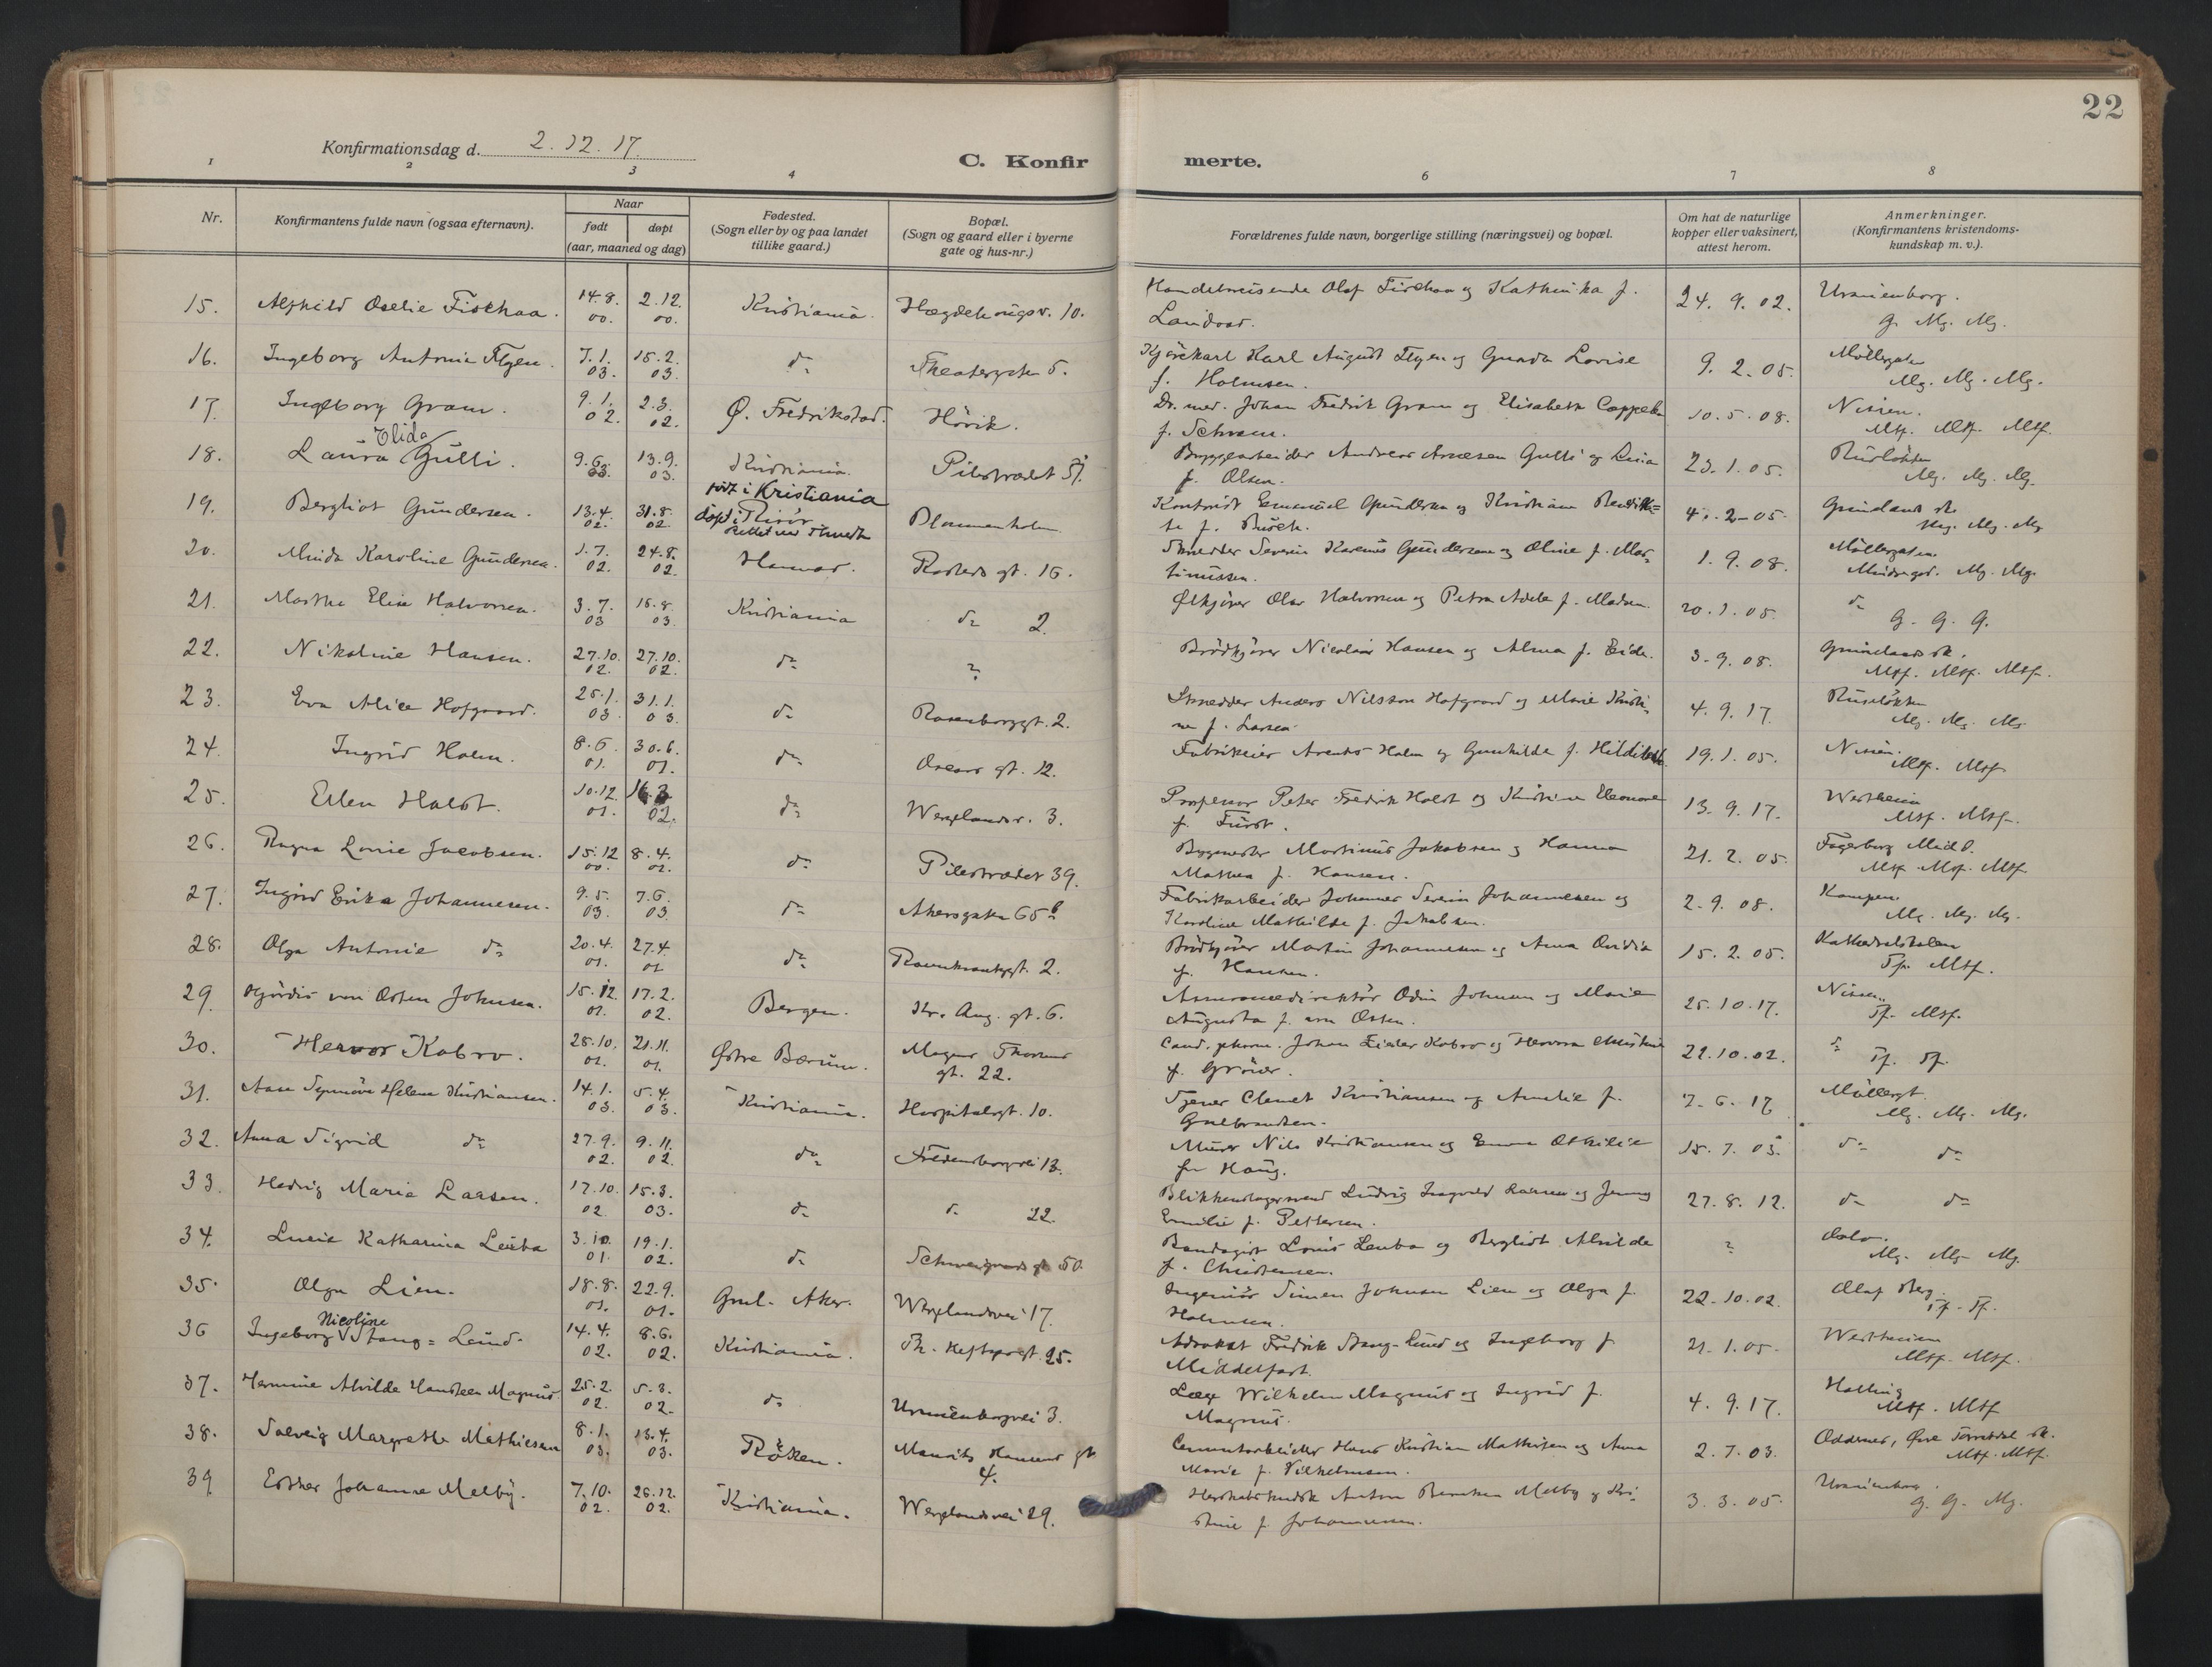 22
Konfirmationsdag d. 2.12.17.
C. Konfir
merte.
1 2 3 4 6 7 8
Nr.
Konfirmantens fulde navn (ogsaa efternavn).
Naar
født døpt
(aar, maaned og dag)
Fødested.
(Sogn eller by og paa landet
tillike gaard.)
Bopæl.
(Sogn og gaard eller i byerne
gate og hus-nr.)
Forældrenes fulde navn, borgerlige stilling (næringsvei) og bopæl.
Om hat de naturlige
kopper eller vaksinert,
attest herom.
Anmerkninger.
(Konfirmantens kristendoms-
kundskap m. v.).
15. Alfhild Oselie Fiskaa. 14.8. 2.12. Kristiania. Hægdehaugsv. 10. Olaf og Kathinka f. 24.9.02. Uranienborg.
00. 00. G. Mg. Mg.
16. Ingeborg Antonie Flygen. 7.1. 15.2. do Theatergaten 5. Karl August Flygen og Gunda Lovise 9.2.05. Møllergaten
03. 03. f. Holmsen. Mg. Mg. Mg.
17. Ingeborg Gram. 9.1. 2.3. Ø. Fredrikstad. Høvik. Dr. med. Johan Fredrik Gram og Elisabeth Cappelen 10.5.08. Nissen.
02. 02. Mtf. Mtf. Mtf.
Elida
18. Laura Gulli. 9.6. 13.9. Kristiania. Pilestrædet 57. Bryggearbeider Andreas Gulli og 23.1.05. Ruseløkken
03. 03. f. Olsen. Mg. Mg. Mg.
19. Bergliot Gundersen. 13.4. 31.8. født i Kristiania Blommenholm Kontorist Emanuel Gundersen og Kristiane 4.2.05. skole
02. 02. døpt i Risør f. Mg. Mg. Mg
20. Minda Karoline Gundersen. 1.7. 24.8. Hamar. Rosteds gt. 16. Skredder Severin Gundersen og Oline f. Mar- 1.9.08. Møllergaten
02. 02. tinussen. Mg. Mg.
21. Martha Elise Halvorsen. 3.7. 16.8. Kristiania do 2. Ølkjører Olav Halvorsen og Petra Adele f. Madsen. 20.1.05. do
03 03. G. G. G.
22. Nikoline Hansen. 27.10. 27.10. do ? Brødkjører Nicolai Hansen og Alma f. Eide. 3.9.08. sk.
02. 02. Mtf. Mtf. Mtf.
23. Eva Alice Hofgaard. 25.1. 31.1. do Rosenborggt. 2. Skredder Anders Nilsson Hofgaard og Marie Kristi- 4.9.17. Ruseløkken
03. 03. ne f. Larsen. Mg. Mg. Mg.
24. Ingrid Holm. 8.6. 30.6. do Oscars gt. 12. Fabrikeier Holm og Gunhilde f. 19.1.05. Nissen.
01. 01. Mtf. Mtf
25. Ellen Holst. 10.12. do Wergelandsv. 3. Professor Peter Fredrik Holst og Kristine Eleonore 13.9.17. Westheim
01. 02. f. Fürst. Mtf. Mtf.
26. Ragna Lovise Jacobsen. 15.12 8.4. do Pilestrædet 39. Bygmester Martinius Jakobsen og Hanna 21.2.05. Fagerborg
00. 01. Mathea f. Hansen. Mtf Mtf. Mtf
27. Ingrid Erika Johannesen. 9.5. 7.6. do Akersgaten 65 b Fabrikarbeider Johannes Severin Johannesen og 2.9.08. Kampen
03. 03. Karoline Mathilde f. Jakobsen. Mg. Mg. Mg.
28. Olga Antonie do 20.4. 27.4. do Rosenkrantzgt. 2. Brødkjører Martin Johannesen og Anna Ovidia 15.2.05. Kathedralskolen
01. 01 f. Hansen. Tf. Mtf.
29. Hjördis von Osten Johnsen. 15.12. 17.2. Bergen. Kr. Aug. gt. 6. Assurancedirektör Odin Johnsen og Marie 25.10.17. Nissen.
01. 02. Augusta f. von Osten. Tf. Mtf.
30. Hervor Kobro. 28.10. 21.11. Østre Bærum. Magnus Thomes Cand. pharm. Johan Kobro og 22.10.02. do
01. 01. gt. 22. Tf. Tf.
31. Aase Synnöve Helene Kristiansen. 14.1. 5.4. Kristiania. Hospitalsgt. 10. Kristiansen og Amalie f. 7.6.17 Møllergt.
03. 03. Gulbrandsen. Mg. Mg. Mg.
32. Anna Sigrid do 27.9. 9.11. do Fredensborgvei 13. Murer Nils Kristiansen og Emma Othilie 15.7.03. do do
02. 02. f. Haug.
33. Hedvig Marie Larsen. 17.10. 15.3. do do 22. Blikkenslagersvend Ludvig Ingvald Larsen og Jenny 27.8.12. do do
02. 03. Emilie f. Pettersen.
34. Lucie Katharina Leuba 3.10. 19.1. do Schweigaards gt 50. Bandagist Louis Leuba og Bergliot Alvilde ? Oslo.
01. 02. f. Christensen. Mg. Mg. Mg.
35. Olga Lien. 18.8. 22.9. Aker. Wergelandsvei 17. Ingeniör Simen Johnsen Lien og Olga f. 22.10.02. Olaf Berg.
01. 01. Holmsen. Tf. Tf.
Nicoline
36 Ingeborg Stang = Lund. 14.4. 8.6. Kristiania. Th. Heftyes gt. 25. Advokat Fredrik Stang-Lund og Ingeborg f. 21.1.05. Westheim
02. 02. Middelfart. Mtf. Mtf.
37. Hermine Alvilde Hansteen Magnus. 25.2. 5.3. do Uranienborgvei 3. Læge Wilhelm Magnus og Ingrid f. 4.9.17. Halling
02. 02. Magnus. Mtf. Mtf
38. Solveig Margrethe Mathiesen 8.1. 13.4. Røken. Maurits Hansens gt Cementarbeider Hans Kristian Mathisen og Anna 2.7.03. Oddernes, sk.
03. 03. 4. Marie f. Vilhelmsen. Mtf. Mtf.
39 Esther Johanne Melby. 7.10. 26.12. Kristiania. Wergelandsvei 29. Herskabskudsk Anton Melby og Kri- 3.3.05. Uranienborg.
02. 02. stine f. Johannesen. G. G. Mg.